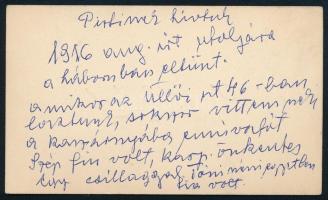 Pistinek hívtuk
1916 aug. írt utoljára
a háborúban eltűnt.
amikor az Üllői út 46-ban
laktunk, sokszor vittem neki
a kaszárnyába ennivalót
Szép fiú volt, karp. önkéntes
egy csillaggal Tóni néni egyetlen
fia volt.